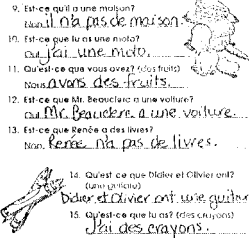 9. Est-ce qu'il a une maison?
Non il n'a pas de maison.
10. Est-ce que tu as une moto?
Oui j'ai une moto.
11. Qu'est-ce que vous avez? (des fruits)
Nous avons des fruits.
12. Est-ce que Mr. Beauclerc a une voiture?
Oui Mr. Beauclerc a une voiture.
13. Est-ce que Renée a des livres?
Non, Renée n'a pas de livres.
14. Qu'est ce que Didier et Olivier ont?
(une guitare)
Didier et Olivier ont une guitar
15. Qu'est-ce que tu as? (des crayons)
J'ai des crayons.